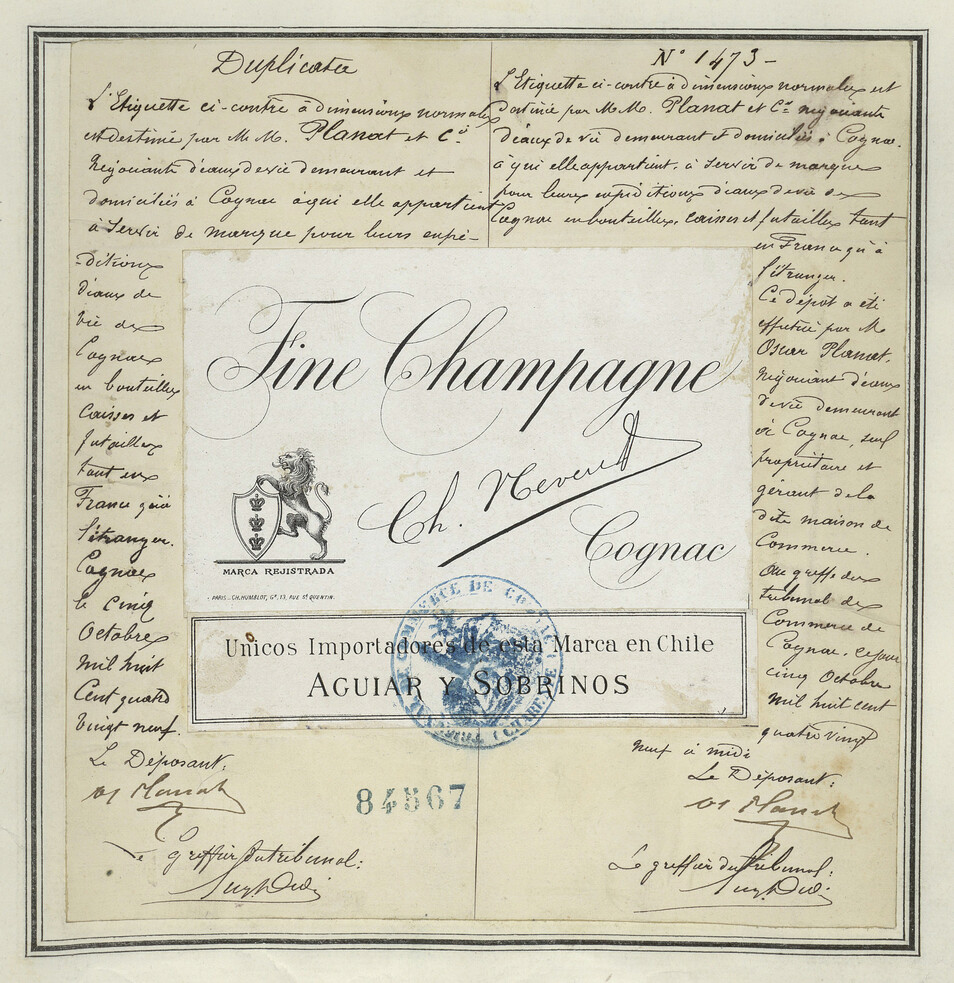 Duplicata
L'Etiquette ci-contre à dimensions normales
est destiné par M M. Planat et Cie
Négociants d'eaux de vie demeurant et
domiciliés à Cognac à qui elle appartient
à servir de marque pour leurs expé-
-ditions
d'eaux de
vie de
Cognac
en bouteilles
caisses et
futailles
tant en
France qu'à
l'étranger.
Cognac
le cinq
Octobre
mil huit
cent quatre
vingt neuf.
Le Déposant:
Le greffier du tribunal:
N° 1473 -
L'Etiquette ci-contre à dimensions normales est
destinée par M.M. Planat et Cie négociants
d'eaux de vie demeurant et domiciliés à Cognac.
à qui elle appartient, à servir de marque
pour leurs expéditions d'eaux de vie de
Cognac en bouteilles, caisses et futailles tant
en France qu'à
l'étranger.
Ce dépôt a été
effectué par M
Oscar Planat,
Négociant d'eaux
de vie demeurant
à Cognac, seul
propriétaire et
gérant de la
dite maison de
Commerce.
Au greffe du
tribunal de
Commerce de
Cognac, ce jour
cinq Octobre
mil huit cent
quatre vingt
neuf à midi
Le Déposant:
Le greffier du tribunal:
Fine Champagne
Ch.
Cognac
MARCA REJISTRADA
PARIS._CH.HUMBLOT, Gr. 19, RUE St QUENTIN.
Unicos Importadores de esta Marca en Chile
AGUIAR Y SOBRINOS
COMMERCE DE COGNAC
84567